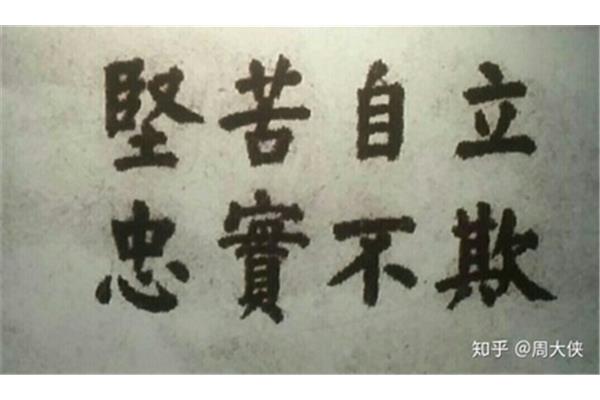 堅苦自立
忠實不欺
知乎 @周大侠